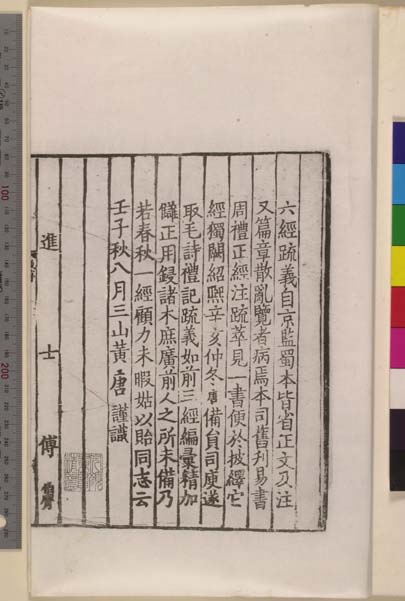 六經疏義自京監蜀本皆省正文及注
又篇章散亂覽者病焉本司舊刊易書
周禮正經注疏萃見一書便於披繹它
經獨闕紹熙辛亥仲冬唐備員司庾遂
取毛詩禮記疏義如前三經編彙精加
讎正用鋟諸木庶廣前人之所未備乃
若春秋一經顧力未暇姑以貽同志云
壬子秋八月三山黃唐謹識
進士傅伯膺